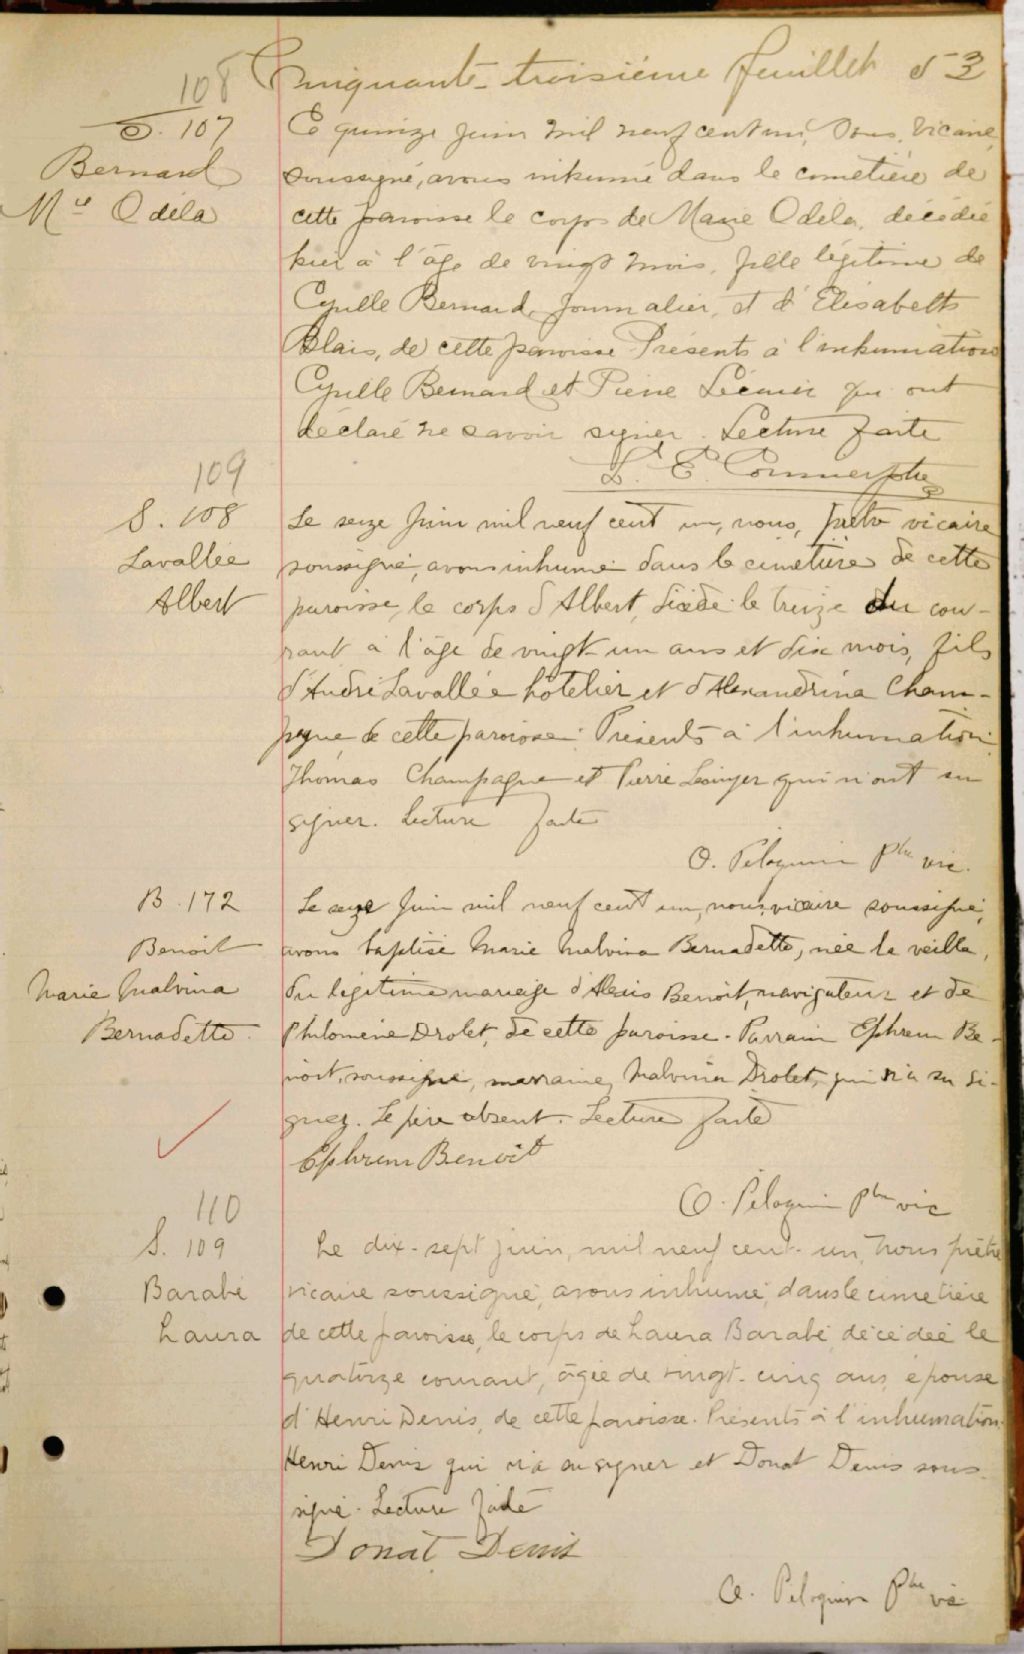 Cinquante-troisième feuillet 53
108
S. 107
Bernard
Mie Odéla
Ce quinze juin mil neuf cent un, nous, vicaire
soussigné, avons inhumé dans le cimetière de
cette paroisse le corps de Marie Odéla, décédée
hier à l'âge de vingt mois, fille légitime de
Cyrille Bernard, journalier, et d'Elisabeth
Blais, de cette paroisse. Présents à l'inhumation
Cyrille Bernard et Pierre qui ont
déclaré ne savoir signer. Lecture faite
L. E.
109
S. 108
Lavallée
Albert
Le seize juin mil neuf cent un, nous, prêtre vicaire
soussigné, avons inhumé dans le cimetière de cette
paroisse, le corps d'Albert, décédé le treize du cou-
rant à l'âge de vingt-un ans et dix mois, fils
d'André Lavallée hôtelier et d'Alexandrina Cham-
pagne de cette paroisse. Présents à l'inhumation
Thomas Champagne et Pierre qui n'ont su
signer. Lecture faite
O. Péloquin Ptre vic.
B. 172
Benoit
Marie Malvina
Bernadette
Le seize juin mil neuf cent un, nous, vicaire soussigné,
avons baptisé Marie Malvina Bernadette, née la veille,
du légitime mariage d'Alexis Benoit, navigateur et de
Philomène Drolet, de cette paroisse. Parrain Ephrem Be-
noit, soussigné, marraine, Malvina Drolet, qui n'a su si-
gner. Le père absent. Lecture faite
Ephrem Benoit
O. Péloquin Ptre vic
110
S. 109
Barabé
Laura
Le dix-sept juin, mil neuf cent-un, nous prêtre
vicaire soussigné, avons inhumé, dans le cimetière
de cette paroisse, le corps de Laura Barabé, décédée le
quatorze courant, âgée de vingt-cinq ans, épouse
d'Henri Denis, de cette paroisse. Présents à l'inhumation
Henri Denis qui n'a su signer et Donat Denis sous-
signé. Lecture faite
Donat Denis
O. Péloquin Ptre vic